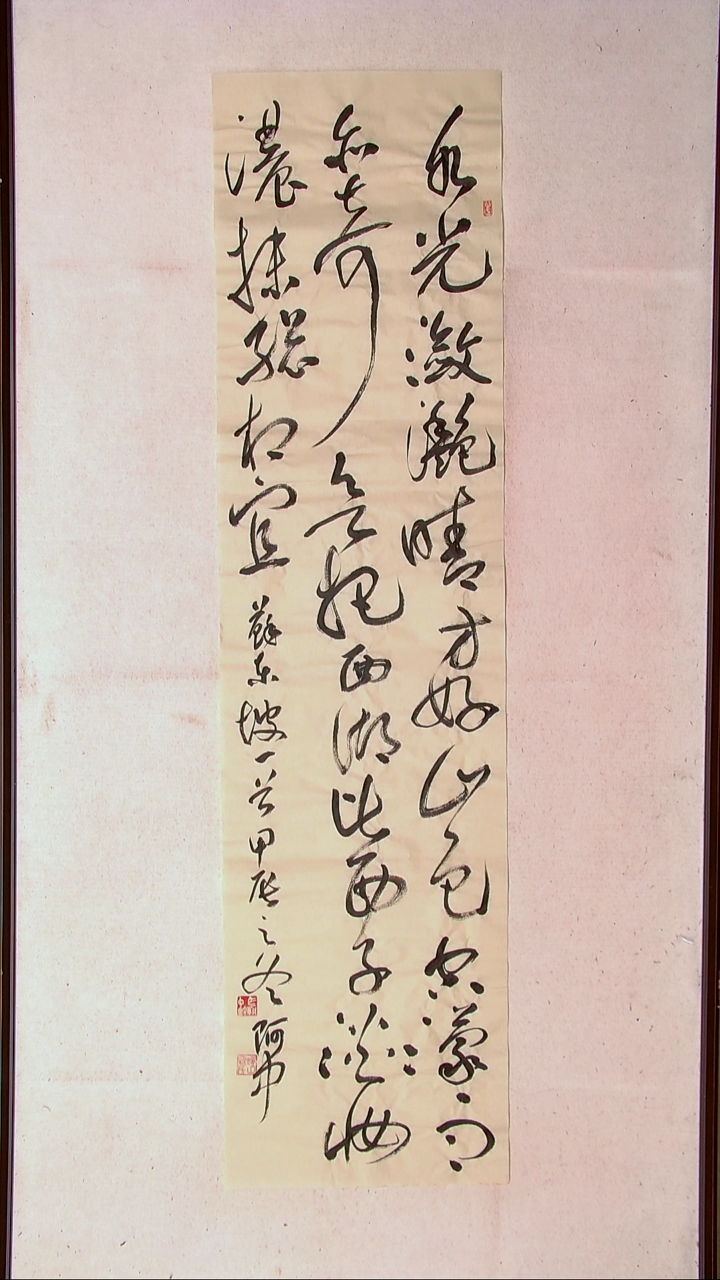 水光瀲灩晴方好山色空濛雨
亦奇欲把西湖比西子淡妝
濃抹總相宜蘇東坡一首甲辰之冬阿中